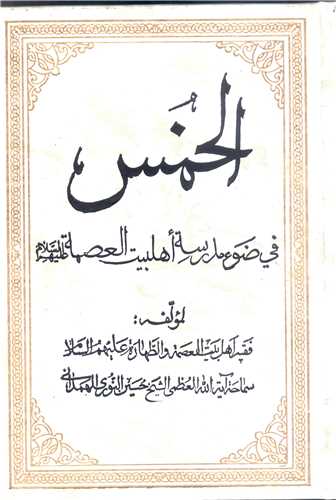 الخُمس
في ضوء مدرسة أهل بيت العصمة عليهم السلام
لمؤلّفه:
فقيه اهل بيت العصمة والطهارة عليهم السلام
سماحة آية الله العظمى الشيخ حسين النوري الهمداني